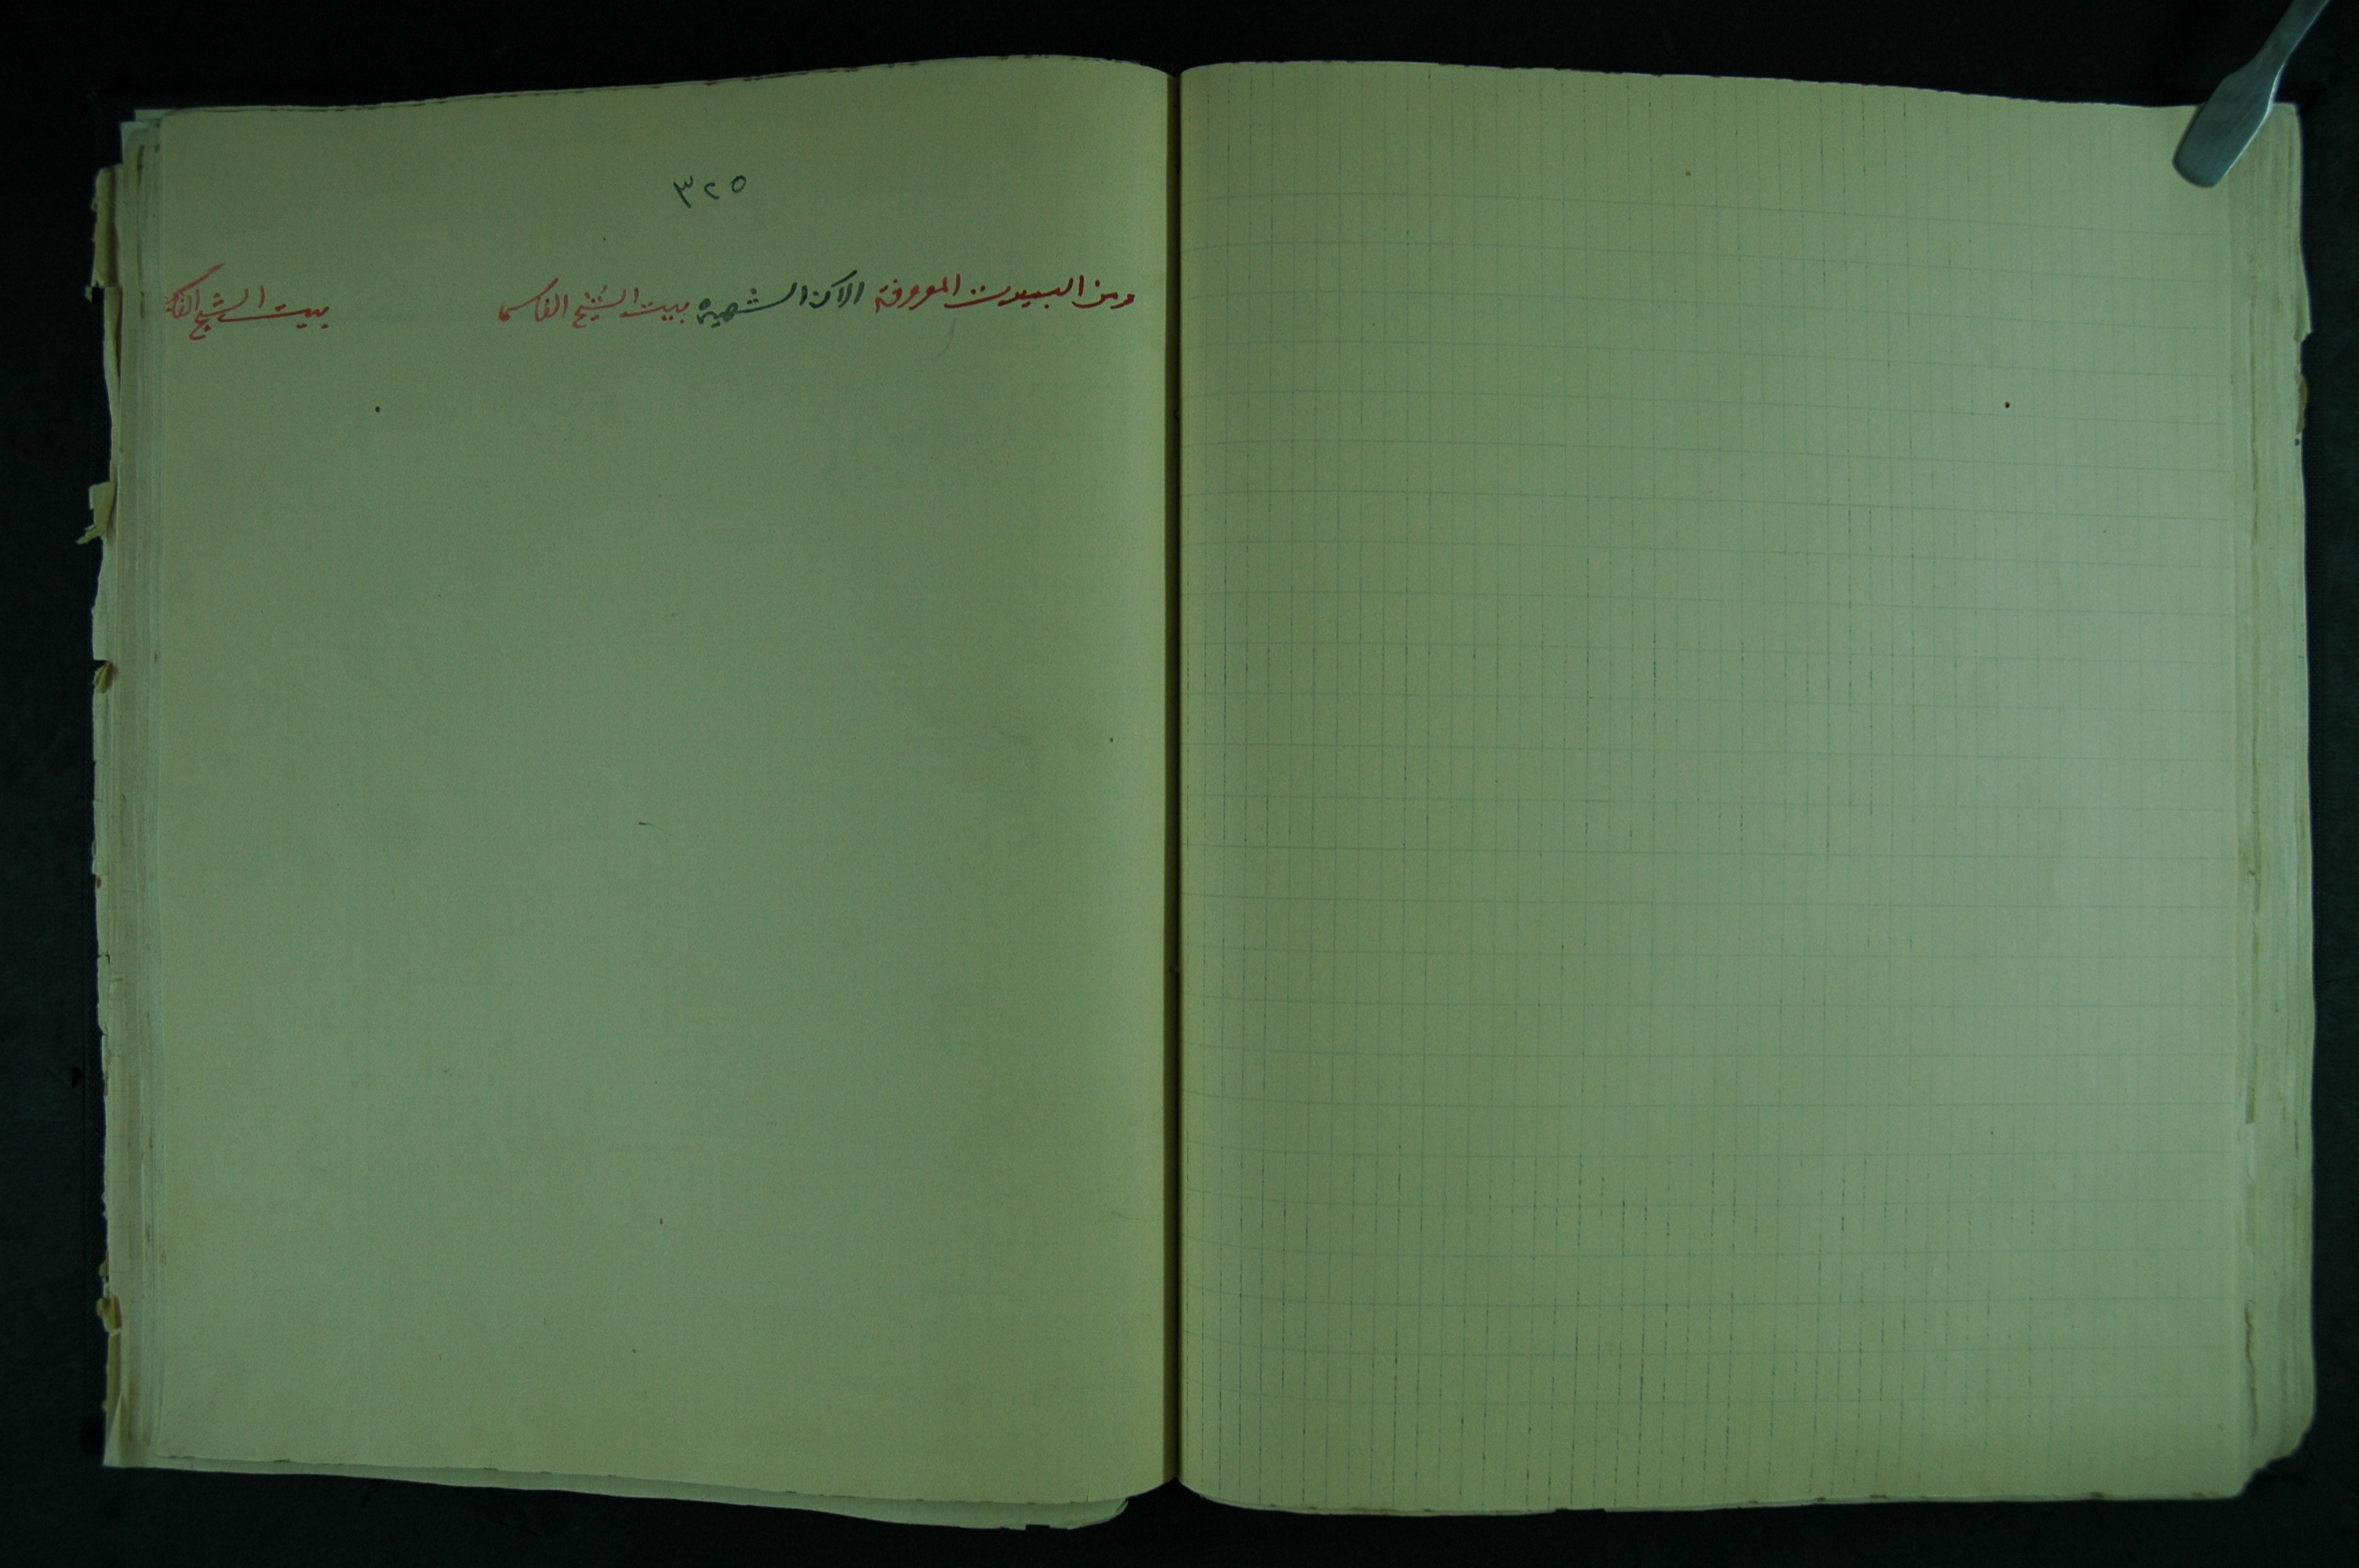 ٣٢٥
ومن البيوت المعروفة الآن الشهيرة بيت الشيخ القاسمي
بيت الشيخ